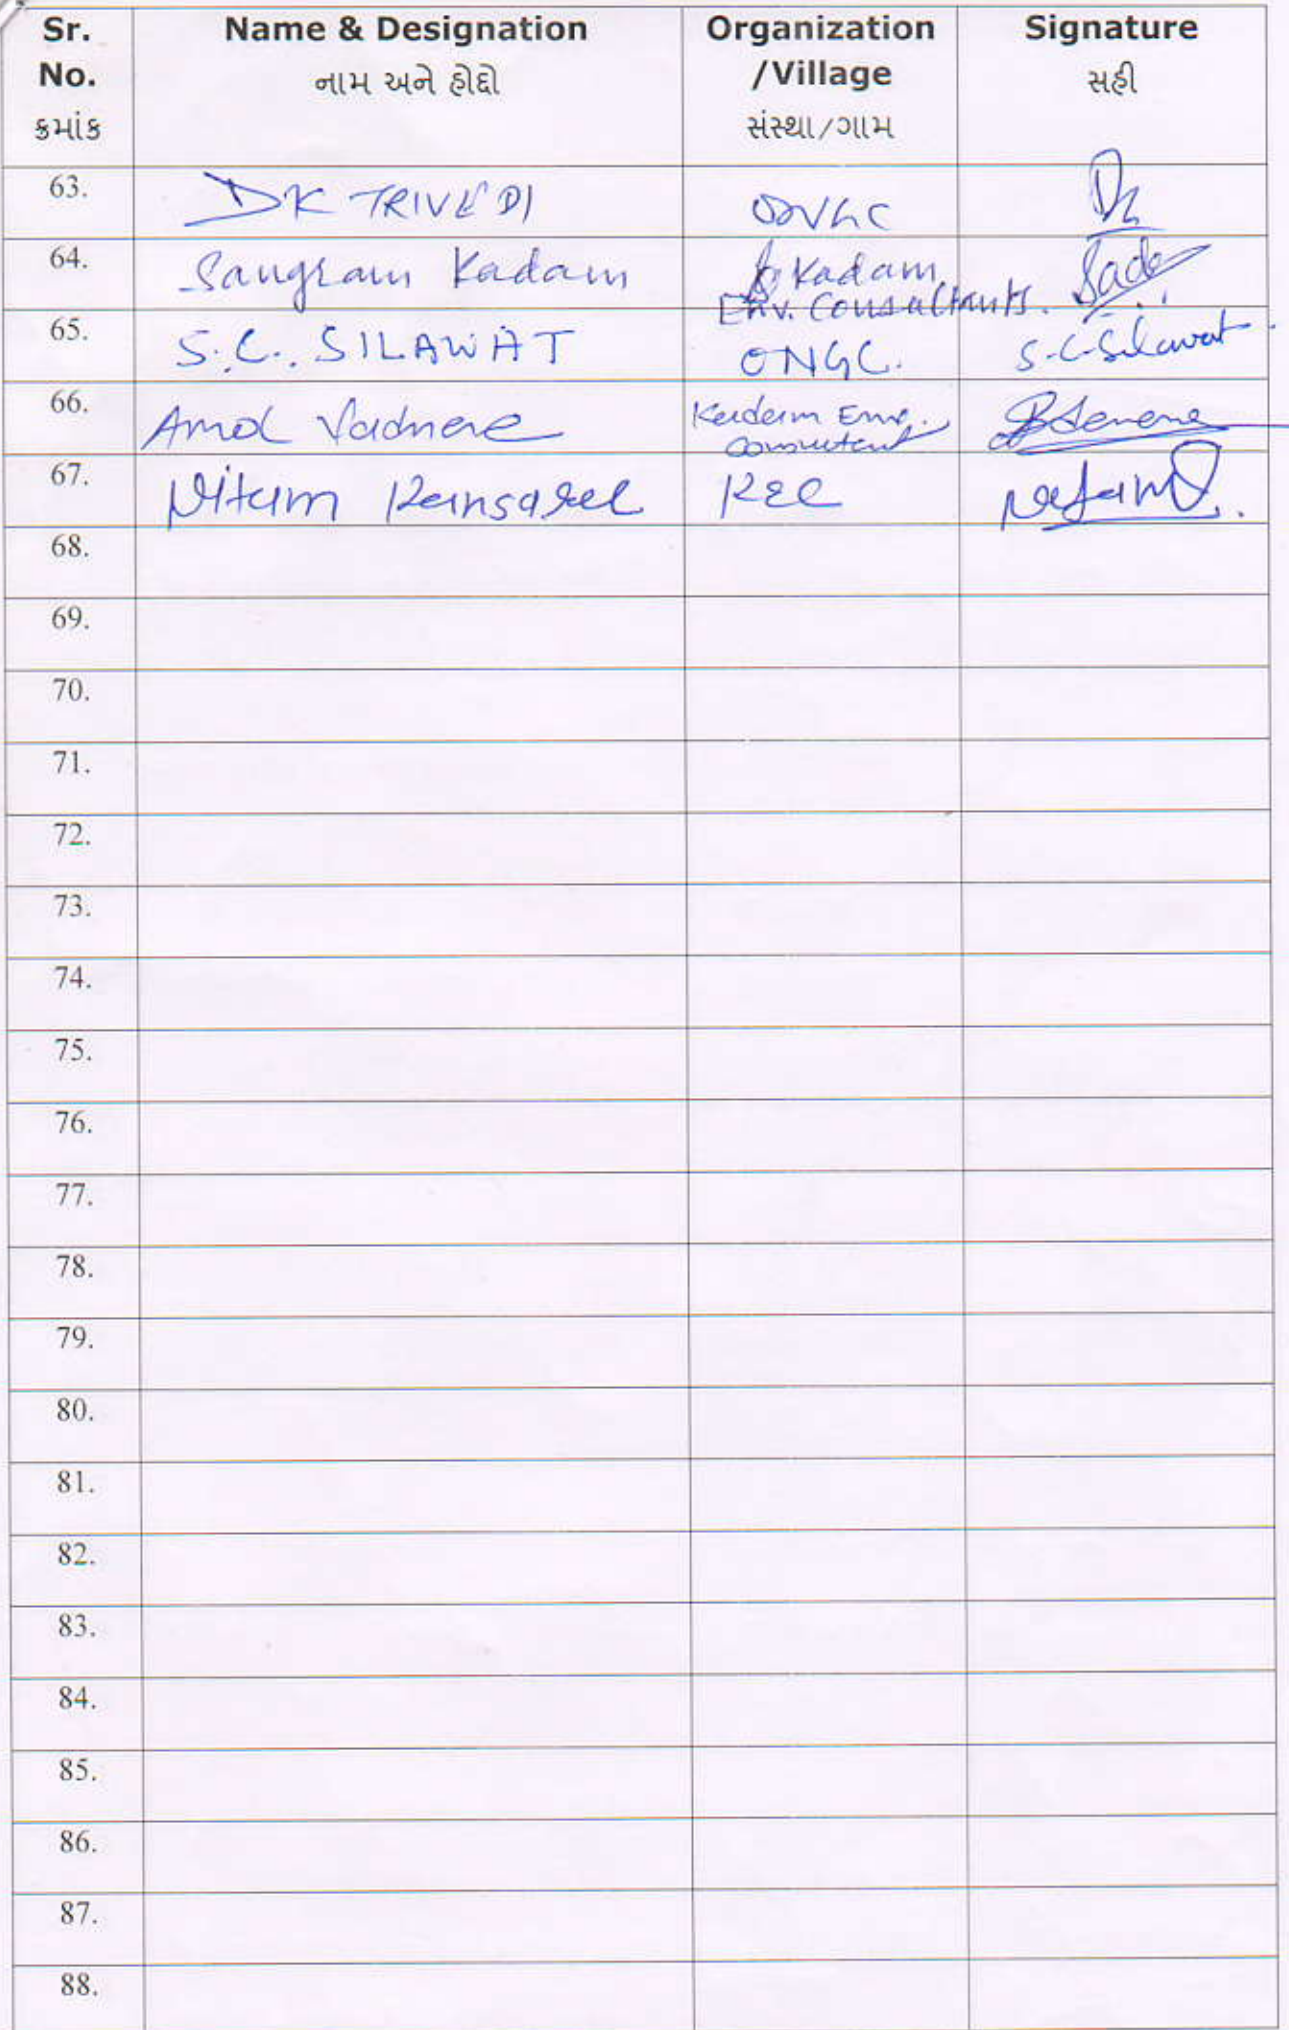 Sr. No. ક્રમાંક | Name & Designation નામ અને હોદ્દો | Organization /Village સંસ્થા/ગામ | Signature સહી
63. DK TRIVEDI ONGC
64. Sangram Kadam Kadam Env. Consultants.
65. S.C. SILAWAT ONGC. S.C. Silawat
66. Amol Vadnere
67. KEC
68.
69.
70.
71.
72.
73.
74.
75.
76.
77.
78.
79.
80.
81.
82.
83.
84.
85.
86.
87.
88.